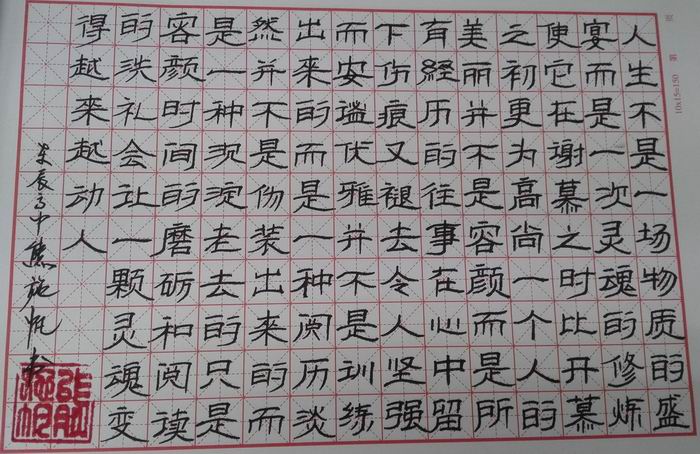 人生不是一场物质的盛
宴而是一次灵魂的修炼
使它在谢慕之时比开慕
之初更为高尚一个人的
美丽并不是容颜而是所
有経历的往事在心中留
下伤痕又褪去令人坚强
而安谧优雅并不是训练
出来的而是一种阅历淡
然并不是伪装出来的而
是一种沉淀老去的只是
容颜时间的磨砺和阅读
的洗礼会让一颗灵魂变
得越来越动人
辰中熊施帆书
10x15=150 第